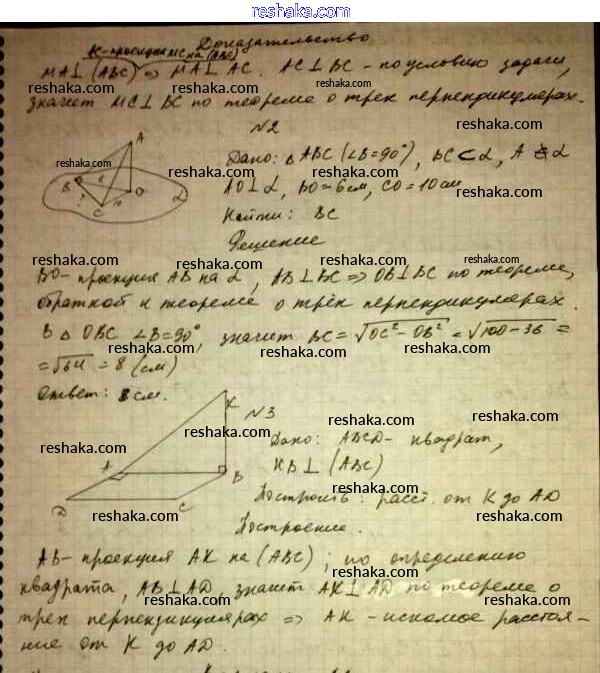 reshaka.com
Доказательство
AC-проекция MC на (ABC)
MA⊥(ABC) => MA⊥AC. AC⊥BC - по условию задачи,
значит MC⊥BC по теореме о трех перпендикулярах.
N2
Дано: △ABC (∠B=90°), BC⊂α, A∉α
AO⊥α, BO=6см, CO=10см
Найти: BC
Решение
BO - проекция AB на α, AB⊥BC => OB⊥BC по теореме,
обратной к теореме о трёх перпендикулярах.
В △OBC ∠B=90°, значит BC=√OC²-OB² = √100-36 =
=√64 = 8 (см)
Ответ: 8 см.
N3
Дано: ABCD - квадрат,
KB⊥(ABC)
Построить: расст. от K до AD
Построение.
AB - проекция AK на (ABC); по определению
квадрата, AB⊥AD, значит AK⊥AD по теореме о
трех перпендикулярах => AK - искомое расстоя-
ние от K до AD.